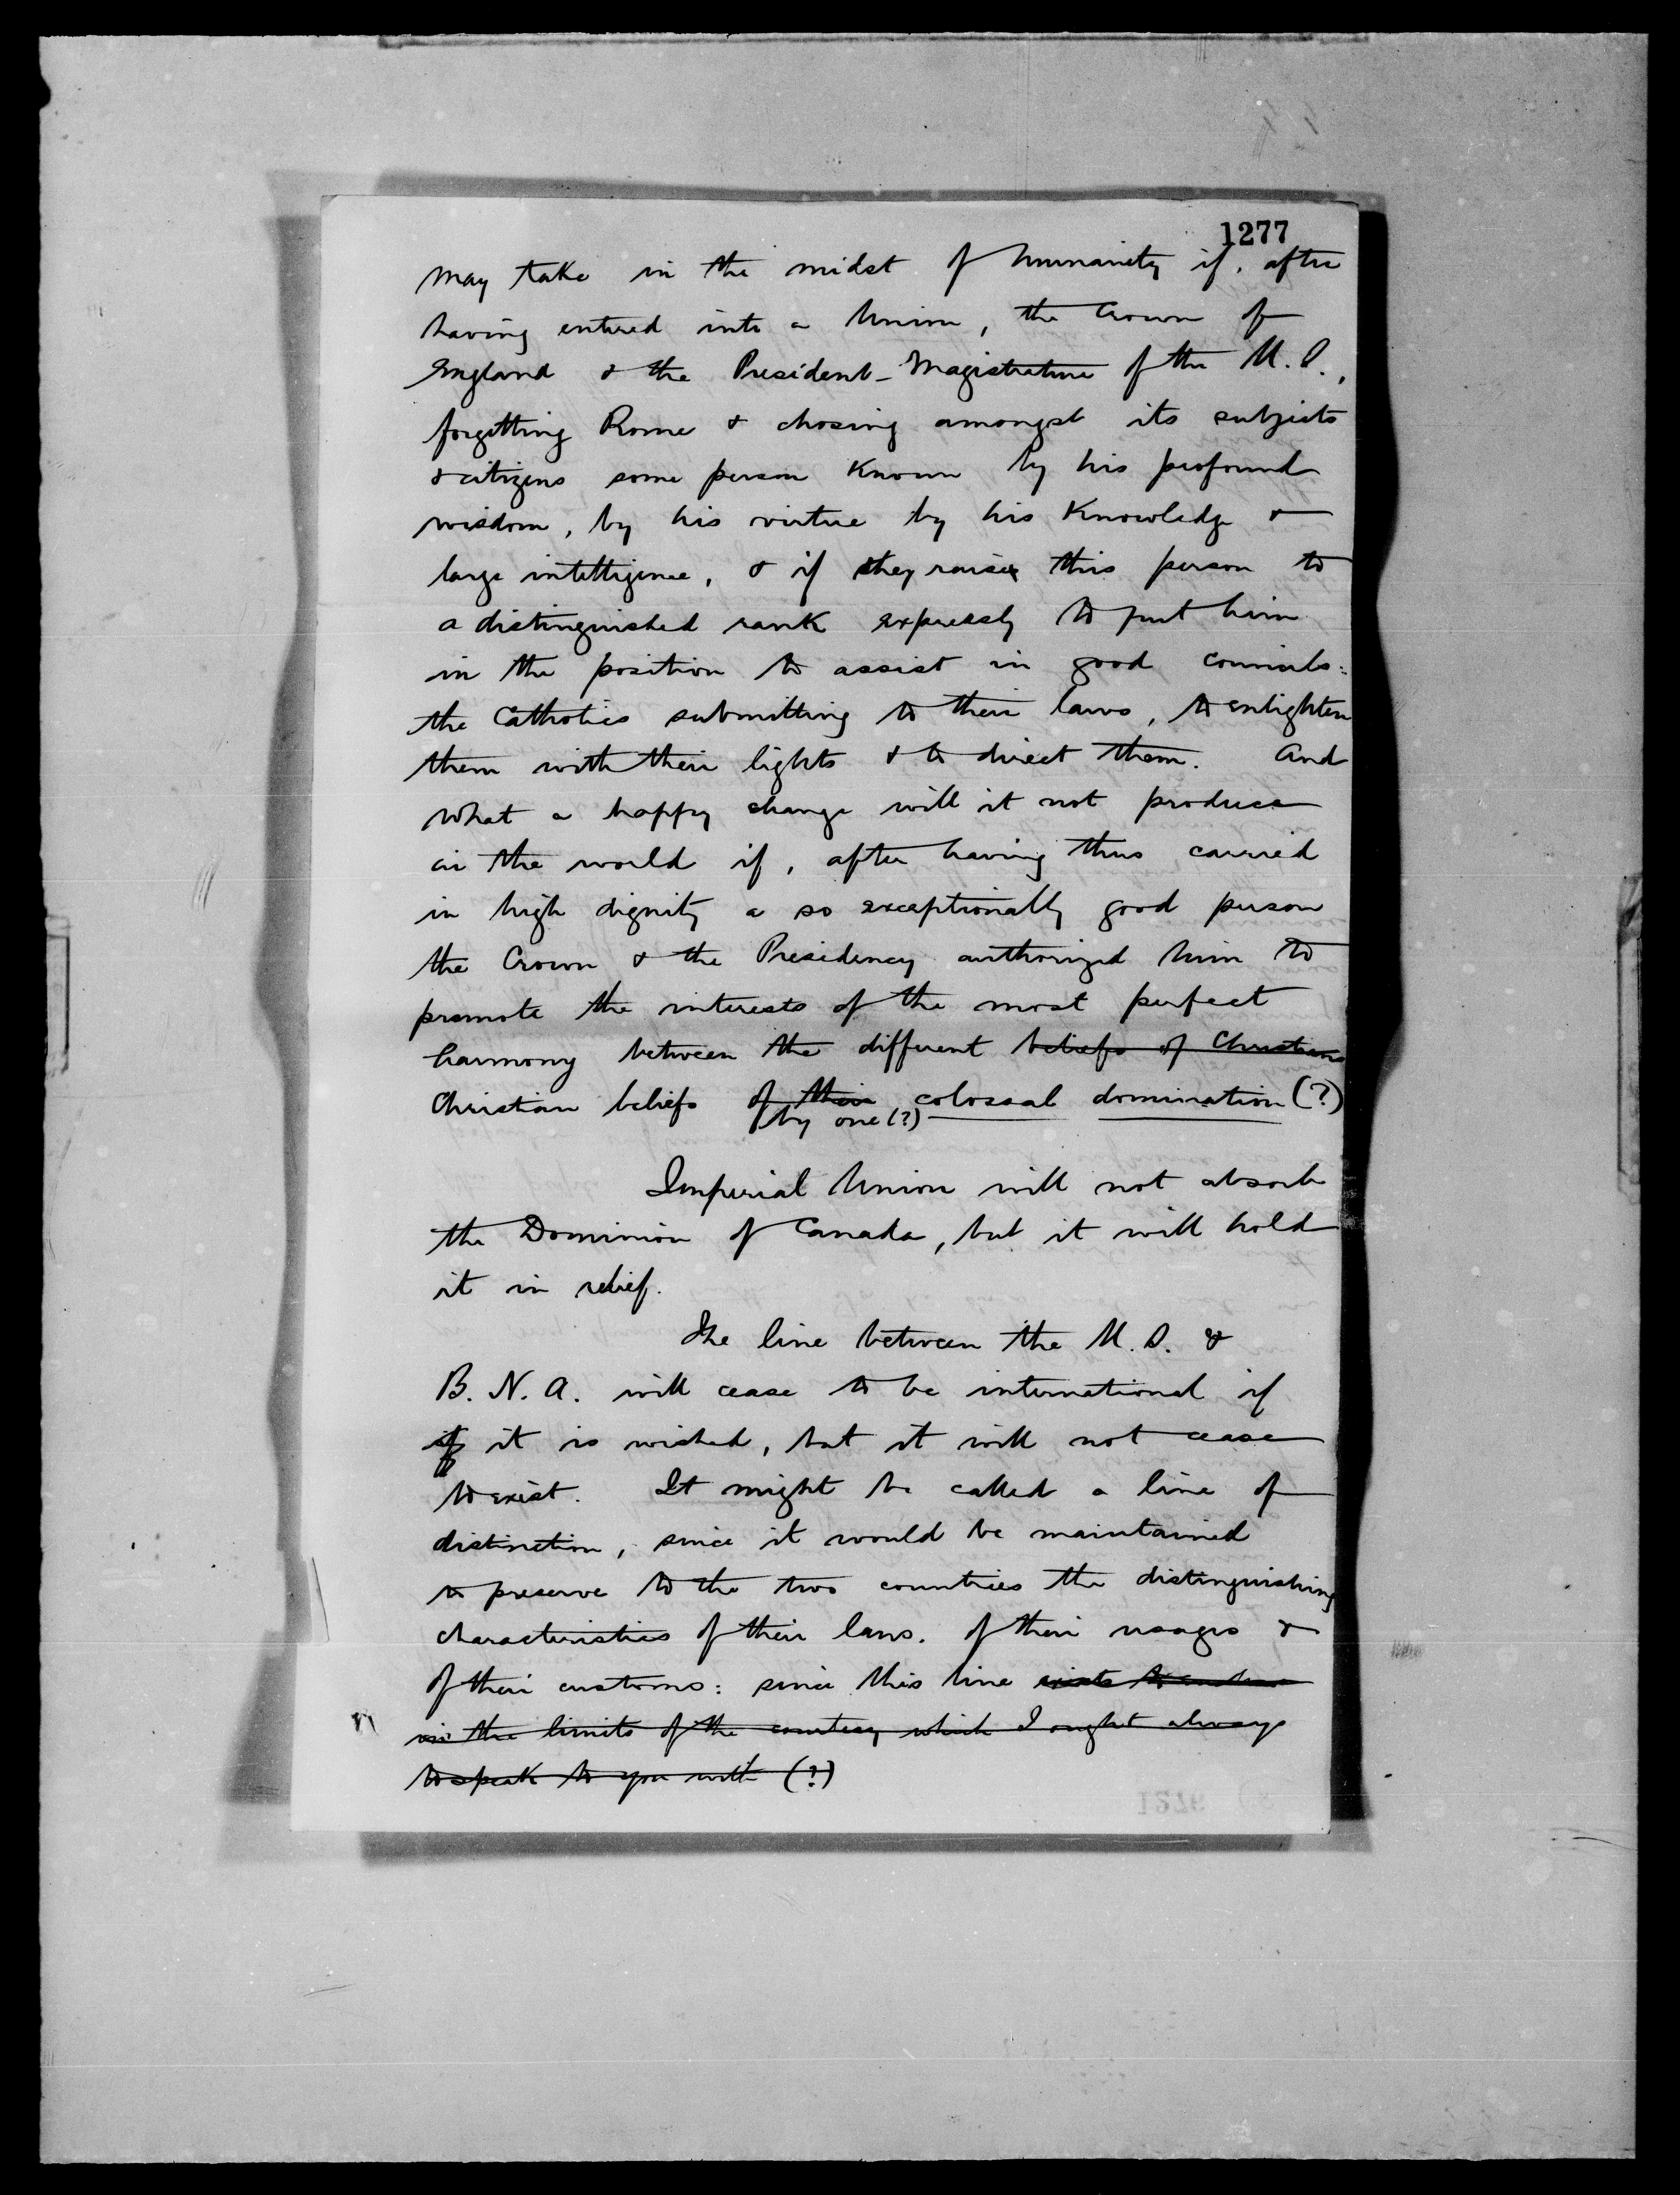 1277
may take in the midst of humanity if, after
having entered into a Union, the Crown of
England & the President-Magistrature of the U.S.,
forgetting Rome & chosing amongst its subjects
& citizens some person known by his profound
wisdom, by his virtue by his knowledge &
large intelligence, & if they raise this person to
a distinguished rank expressly to put him
in the position to assist in good councils:
the Catholics submitting to their laws, to enlighten
them with their lights & to direct them. And
what a happy change will it not produce
in the world if, after having thus carried
in high dignity a so exceptionally good person
the Crown & the Presidency authorized him to
promote the interests of the most perfect
harmony between the different beliefs of Christians
Christian beliefs of their colossal domination (?)
by one (?)
Imperial Union will not absorb
the Dominion of Canada, but it will hold
it in relief.
The line between the U.S. &
B.N.A. will cease to be international if
if it is wished, but it will not cease
to exist. It might be called a line of
distinction, since it would be maintained
to preserve to the two countries the distinguishing
characteristics of their laws. of their usages &
of their customs: since this line exists to
in the limits of the courtesy which I ought always
to speak to you with (?)
1276